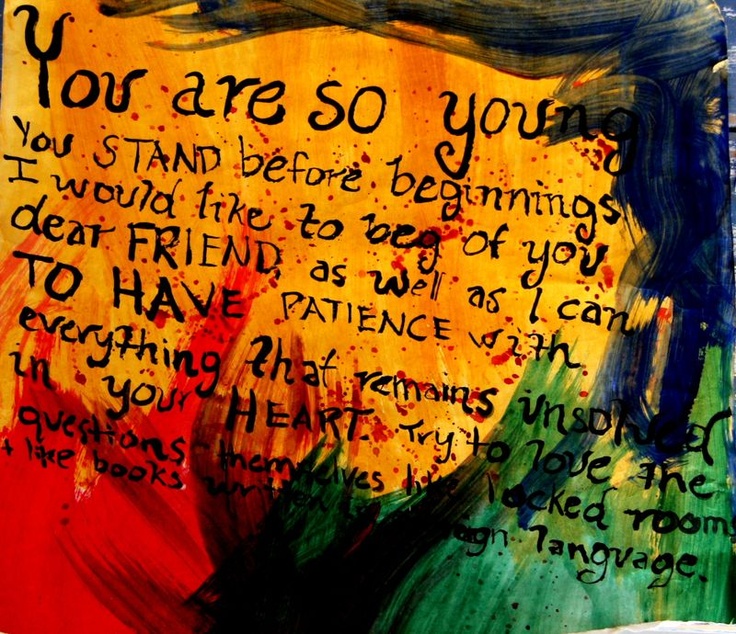 You are so young
You STAND before beginnings
I would like to beg of you
dear FRIEND, as well as I can
TO HAVE PATIENCE with
everything that remains unsolved
in your HEART. Try to love the
questions themselves like locked rooms
+ like books written in foreign language.